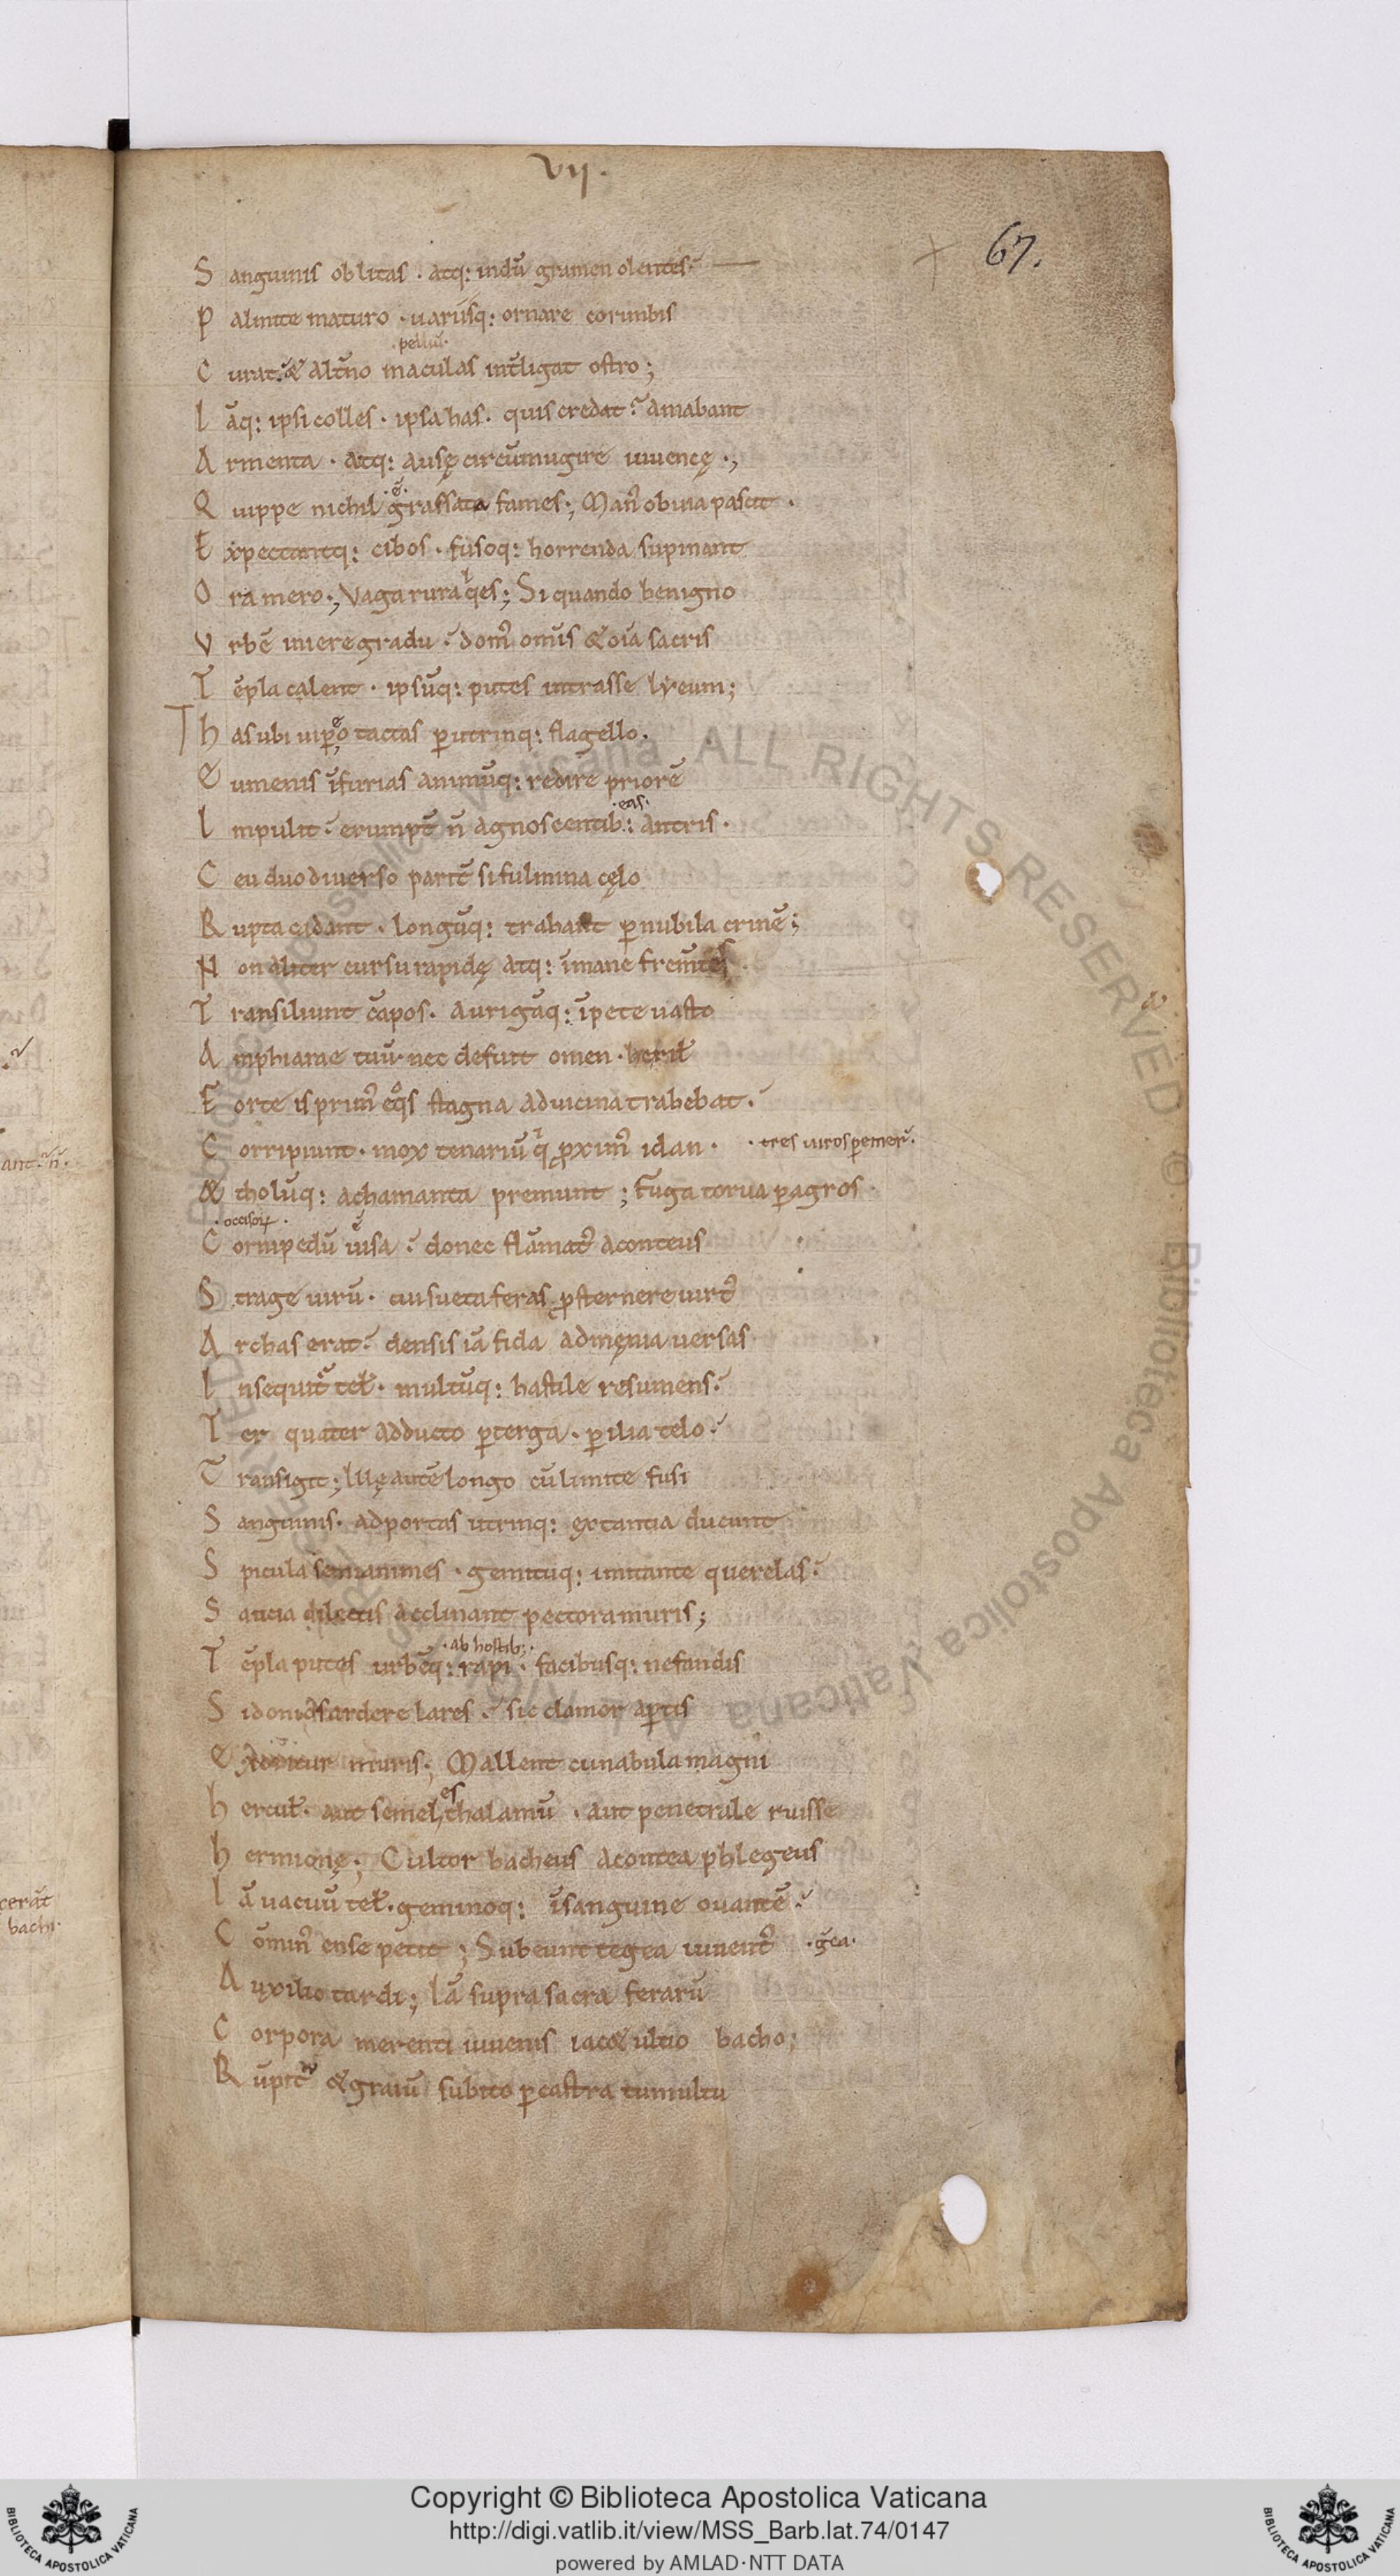 VIJ.
67.
S anguinis oblitas . atq: indū gramen olentes —
P almite maturo . uariisq: ornare corimbis
.pelliū.
C urat. & alt̄no maculas int̄ligat ostro;
I āq: ipsi colles . ipsa has . quis credat? amabant
A rmenta . atq: ausę circūmugire iuuencę .,
.ē.
Q uippe nichil grassata fames., Man' obuia pascit .
E xpectantq: cibos . fusoq: horrenda supinant
O ra mero ., Vaga rura q̇es; Si quando benigno
V rbē iniere gradu . dom' omīs & oīa sacris
T ēpla calent . ipsūq: putes intrasse lyeum;
Th as ubi uip̄eo tactas p utrinq: flagello.
E umenis īfurias animūq: redire priorē
.eas.
I mpulit . erumpt̄ n̄ agnoscentib: antris .
C eu duo diuerso parit̄ si fulmina cęlo
R upta cadant . longūq: trahant p nubila crinē;
N on aliter cursu rapidę atq: īmane frem̄tes .
T ransiliunt cāpos . aurigāq: īpete uasto
A mphiarae tuū . nec defuit omen . heril̄
F orte is prim' eq̊s stagna ad uicina trahebat .
C orripiunt . mox tenariū q̇ p̱xim' idan . . tres uiros pemer̄.
& tholūq: achamanta premunt ; Fuga torua p agros .
. occisor̄ .
C ornipedū uisa . donec flāmat' aconteus
S trage uirū . cui sueta feras p̱sternere uirt'
A rchas erat . densis iā fida ad męnia uersas
I nsequit̄ tel̄ . multūq: hastile resumens .
T er quater adducto p terga . p ilia telo .
T ransigit ; Illę autē longo cū limite fusi
S anguinis . ad portas utrinq: extantia ducunt
S picula semianimes . gemituq: imitante querelas .
S aucia dilectis acclinant pectora muris;
.ab hostib;.
T ēpla putes urbēq: rapi . facibusq: nefandis
S idonios ardere lares . sic clamor ap̱tis
E xoritur muris ; Mallent cunabula magni
h ercul̄ . aut semeles thalamū . aut penetrale ruisse
h ermionę ; Cultor bacheus acontea phlegeus
I ā uacuū tel̄ . geminoq: īsanguine ouantē .
C ōmin' ense petit ; Subeunt tegea iuuent' . gēa.
A uxilio tardi ; Iā supra sacra ferarū
C orpora merenti iuuenis iac& ultio bacho;
R ūpit̄ & graiū subito p castra tumultu
Copyright © Biblioteca Apostolica Vaticana
http://digi.vatlib.it/view/MSS_Barb.lat.74/0147
powered by AMLAD·NTT DATA